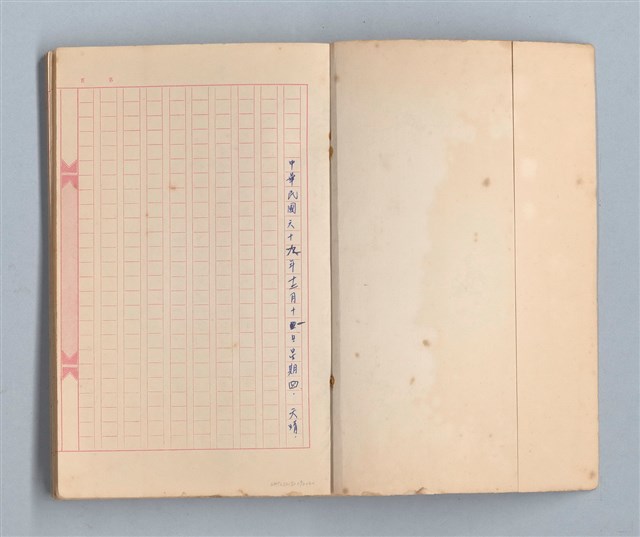 中華民國六十九年十二月十一日星期四．天晴．